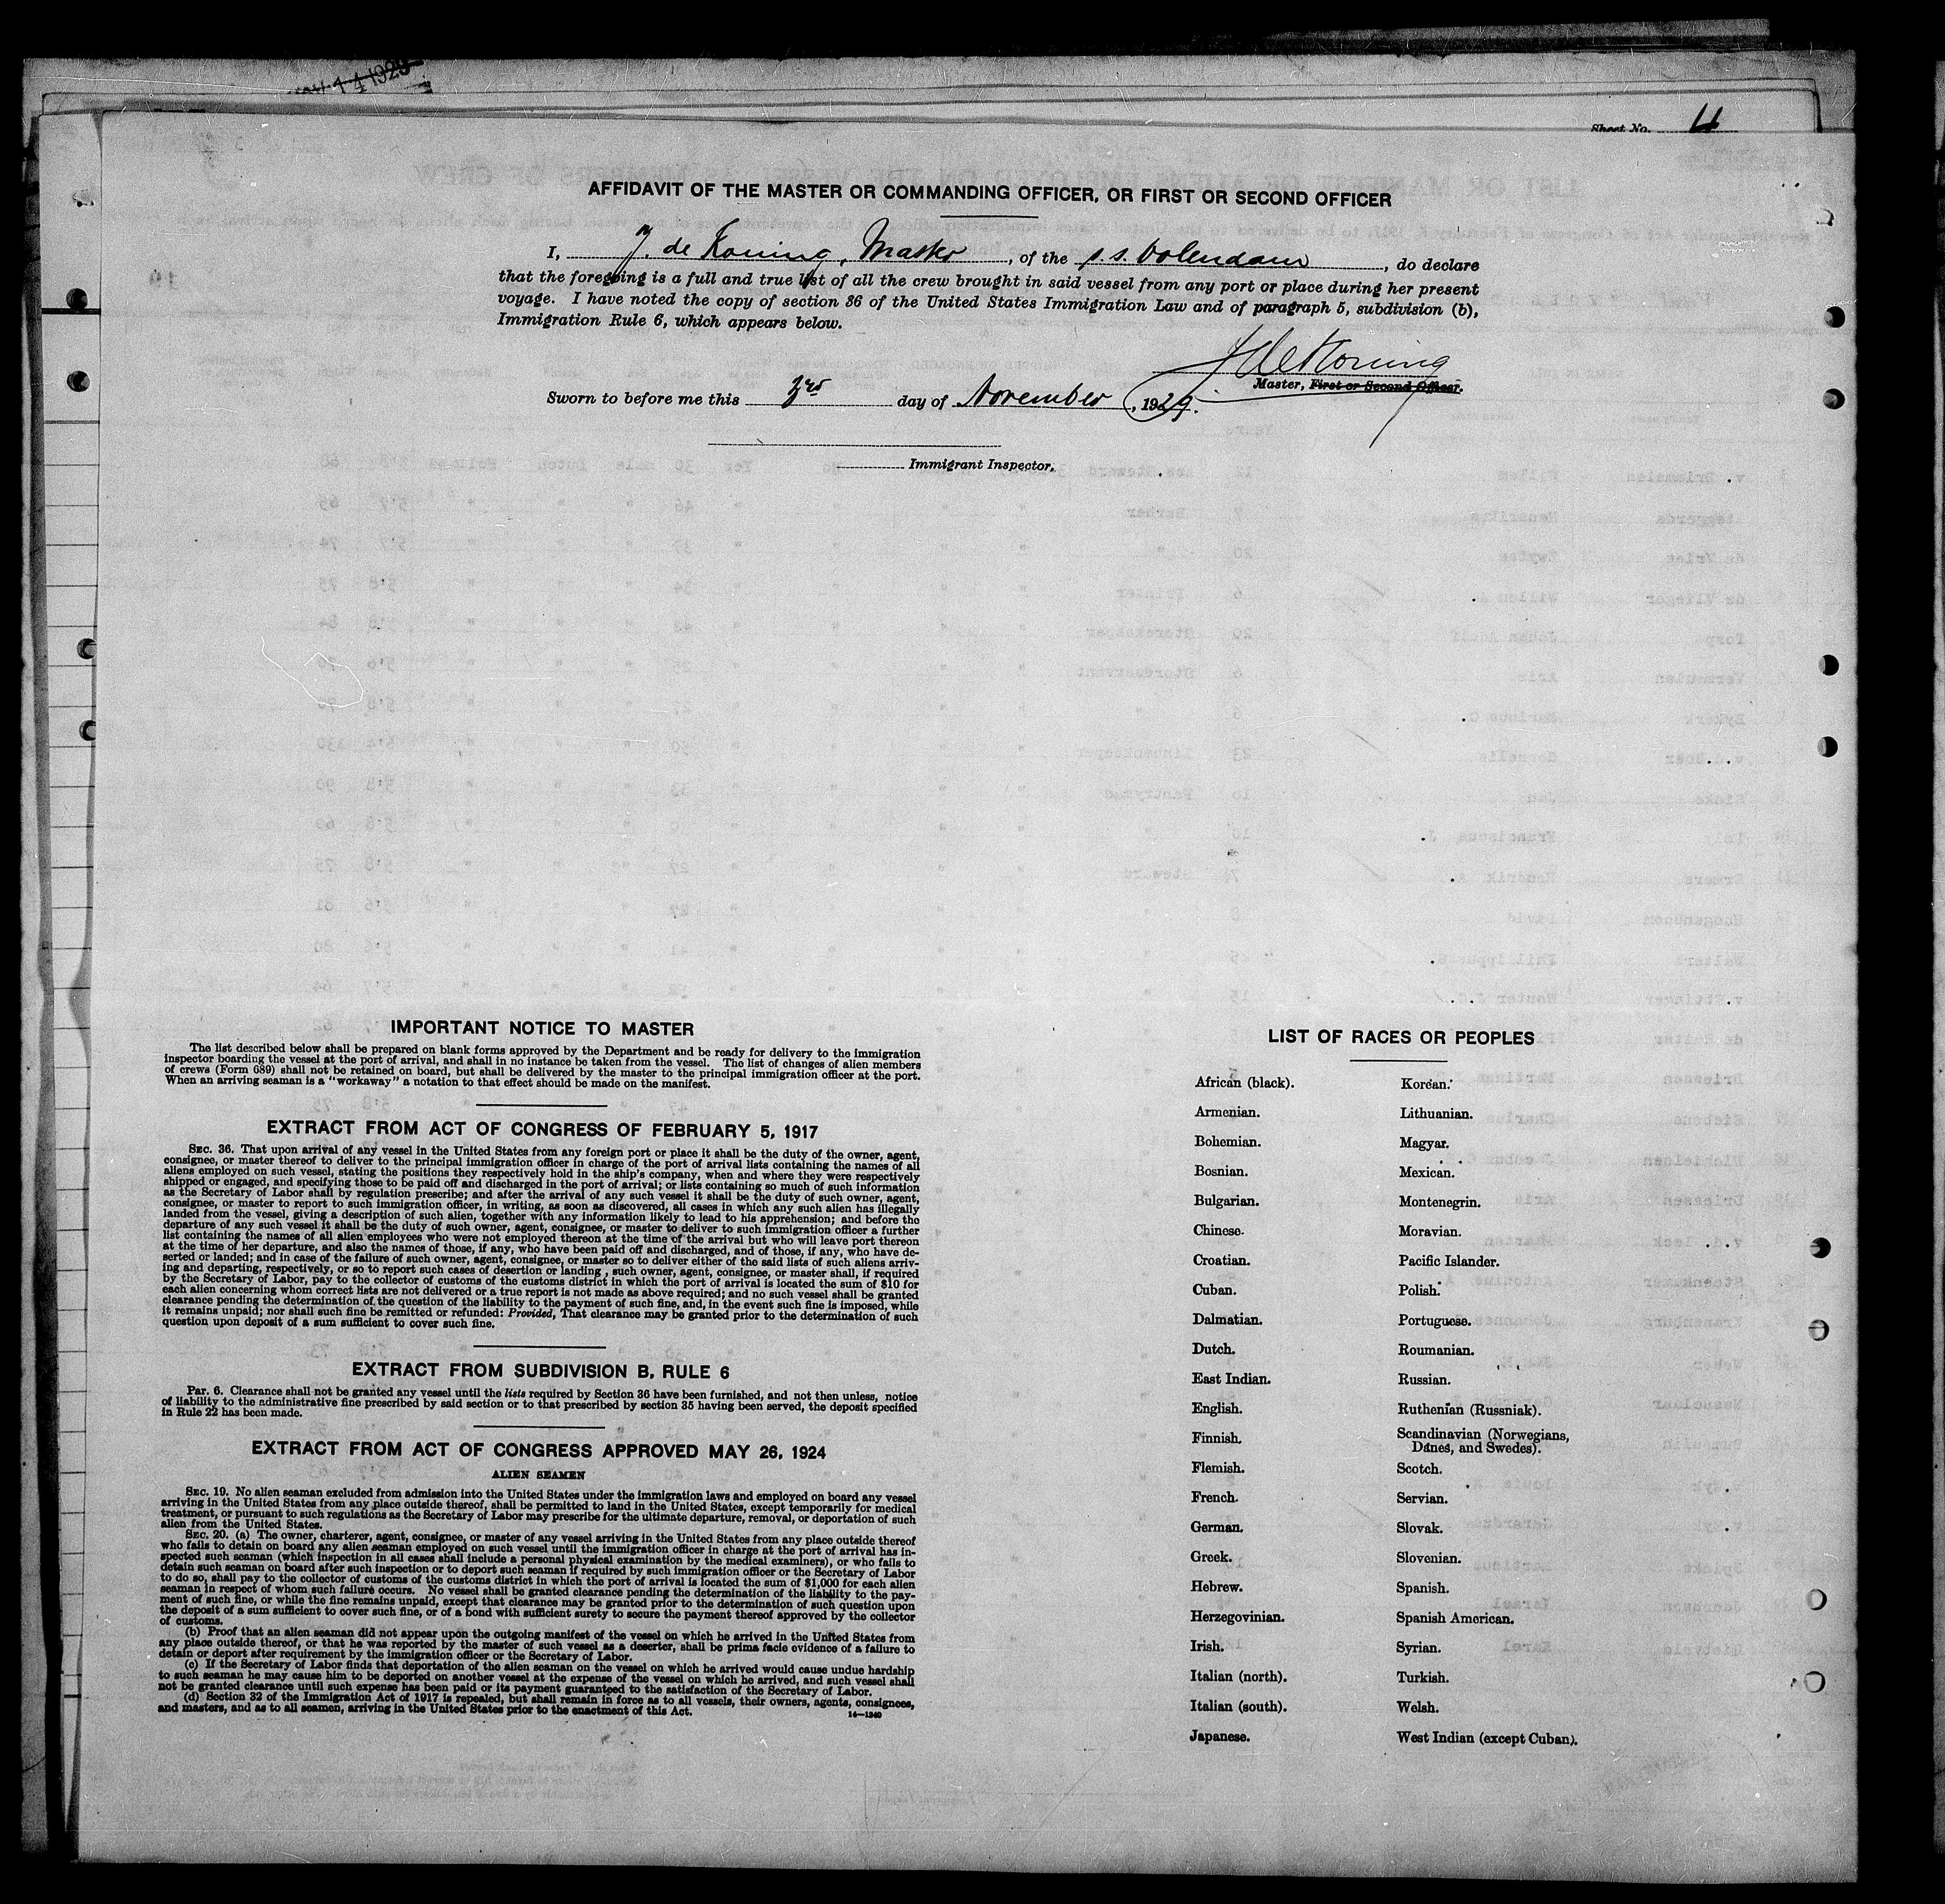 14 1929
Sheet No. 4
AFFIDAVIT OF THE MASTER OR COMMANDING OFFICER, OR FIRST OR SECOND OFFICER
I, J. de Koning, Master, of the s.s. Volendam, do declare
that the foregoing is a full and true list of all the crew brought in said vessel from any port or place during her present
voyage. I have noted the copy of section 36 of the United States Immigration Law and of paragraph 5, subdivision (b),
Immigration Rule 6, which appears below.
J de Koning
Master, First or Second Officer.
Sworn to before me this 3rd day of November, 1929.
Immigrant Inspector.
IMPORTANT NOTICE TO MASTER
The list described below shall be prepared on blank forms approved by the Department and be ready for delivery to the immigration
inspector boarding the vessel at the port of arrival, and shall in no instance be taken from the vessel. The list of changes of alien members
of crews (Form 689) shall not be retained on board, but shall be delivered by the master to the principal immigration officer at the port.
When an arriving seaman is a "workaway" a notation to that effect should be made on the manifest.
EXTRACT FROM ACT OF CONGRESS OF FEBRUARY 5, 1917
SEC. 36. That upon arrival of any vessel in the United States from any foreign port or place it shall be the duty of the owner, agent,
consignee, or master thereof to deliver to the principal immigration officer in charge of the port of arrival lists containing the names of all
aliens employed on such vessel, stating the positions they respectively hold in the ship's company, when and where they were respectively
shipped or engaged, and specifying those to be paid off and discharged in the port of arrival; or lists containing so much of such information
as the Secretary of Labor shall by regulation prescribe; and after the arrival of any such vessel it shall be the duty of such owner, agent,
consignee, or master to report to such immigration officer, in writing, as soon as discovered, all cases in which any such alien has illegally
landed from the vessel, giving a description of such alien, together with any information likely to lead to his apprehension; and before the
departure of any such vessel it shall be the duty of such owner, agent, consignee, or master to deliver to such immigration officer a further
list containing the names of all alien employees who were not employed thereon at the time of the arrival but who will leave port thereon
at the time of her departure, and also the names of those, if any, who have been paid off and discharged, and of those, if any, who have de-
serted or landed; and in case of the failure of such owner, agent, consignee, or master so to deliver either of the said lists of such aliens arriv-
ing and departing, respectively, or so to report such cases of desertion or landing, such owner, agent, consignee, or master shall, if required
by the Secretary of Labor, pay to the collector of customs of the customs district in which the port of arrival is located the sum of $10 for
each alien concerning whom correct lists are not delivered or a true report is not made as above required; and no such vessel shall be granted
clearance pending the determination of the question of the liability to the payment of such fine, and, in the event such fine is imposed, while
it remains unpaid; nor shall such fine be remitted or refunded: Provided, That clearance may be granted prior to the determination of such
question upon deposit of a sum sufficient to cover such fine.
EXTRACT FROM SUBDIVISION B, RULE 6
Par. 6. Clearance shall not be granted any vessel until the lists required by Section 36 have been furnished, and not then unless, notice
of liability to the administrative fine prescribed by said section or to that prescribed by section 35 having been served, the deposit specified
in Rule 22 has been made.
EXTRACT FROM ACT OF CONGRESS APPROVED MAY 26, 1924
ALIEN SEAMEN
SEC. 19. No alien seaman excluded from admission into the United States under the immigration laws and employed on board any vessel
arriving in the United States from any place outside thereof, shall be permitted to land in the United States, except temporarily for medical
treatment, or pursuant to such regulations as the Secretary of Labor may prescribe for the ultimate departure, removal, or deportation of such
alien from the United States.
SEC. 20. (a) The owner, charterer, agent, consignee, or master of any vessel arriving in the United States from any place outside thereof
who fails to detain on board any alien seaman employed on such vessel until the immigration officer in charge at the port of arrival has in-
spected such seaman (which inspection in all cases shall include a personal physical examination by the medical examiners), or who fails to
detain such seaman on board after such inspection or to deport such seaman if required by such immigration officer or the Secretary of Labor
to do so, shall pay to the collector of customs of the customs district in which the port of arrival is located the sum of $1,000 for each alien
seaman in respect of whom such failure occurs. No vessel shall be granted clearance pending the determination of the liability to the pay-
ment of such fine, or while the fine remains unpaid, except that clearance may be granted prior to the determination of such question upon
the deposit of a sum sufficient to cover such fine, or of a bond with sufficient surety to secure the payment thereof approved by the collector
of customs.
(b) Proof that an alien seaman did not appear upon the outgoing manifest of the vessel on which he arrived in the United States from
any place outside thereof, or that he was reported by the master of such vessel as a deserter, shall be prima facie evidence of a failure to
detain or deport after requirement by the immigration officer or the Secretary of Labor.
(c) If the Secretary of Labor finds that deportation of the alien seaman on the vessel on which he arrived would cause undue hardship
to such seaman he may cause him to be deported on another vessel at the expense of the vessel on which he arrived, and such vessel shall
not be granted clearance until such expense has been paid or its payment guaranteed to the satisfaction of the Secretary of Labor.
(d) Section 32 of the Immigration Act of 1917 is repealed, but shall remain in force as to all vessels, their owners, agents, consignees,
and masters, and as to all seamen, arriving in the United States prior to the enactment of this Act.
14—1240
LIST OF RACES OR PEOPLES
African (black).
Armenian.
Bohemian.
Bosnian.
Bulgarian.
Chinese.
Croatian.
Cuban.
Dalmatian.
Dutch.
East Indian.
English.
Finnish.
Flemish.
French.
German.
Greek.
Hebrew.
Herzegovinian.
Irish.
Italian (north).
Italian (south).
Japanese.
Korean.
Lithuanian.
Magyar.
Mexican.
Montenegrin.
Moravian.
Pacific Islander.
Polish.
Portuguese.
Roumanian.
Russian.
Ruthenian (Russniak).
Scandinavian (Norwegians,
Danes, and Swedes).
Scotch.
Servian.
Slovak.
Slovenian.
Spanish.
Spanish American.
Syrian.
Turkish.
Welsh.
West Indian (except Cuban).